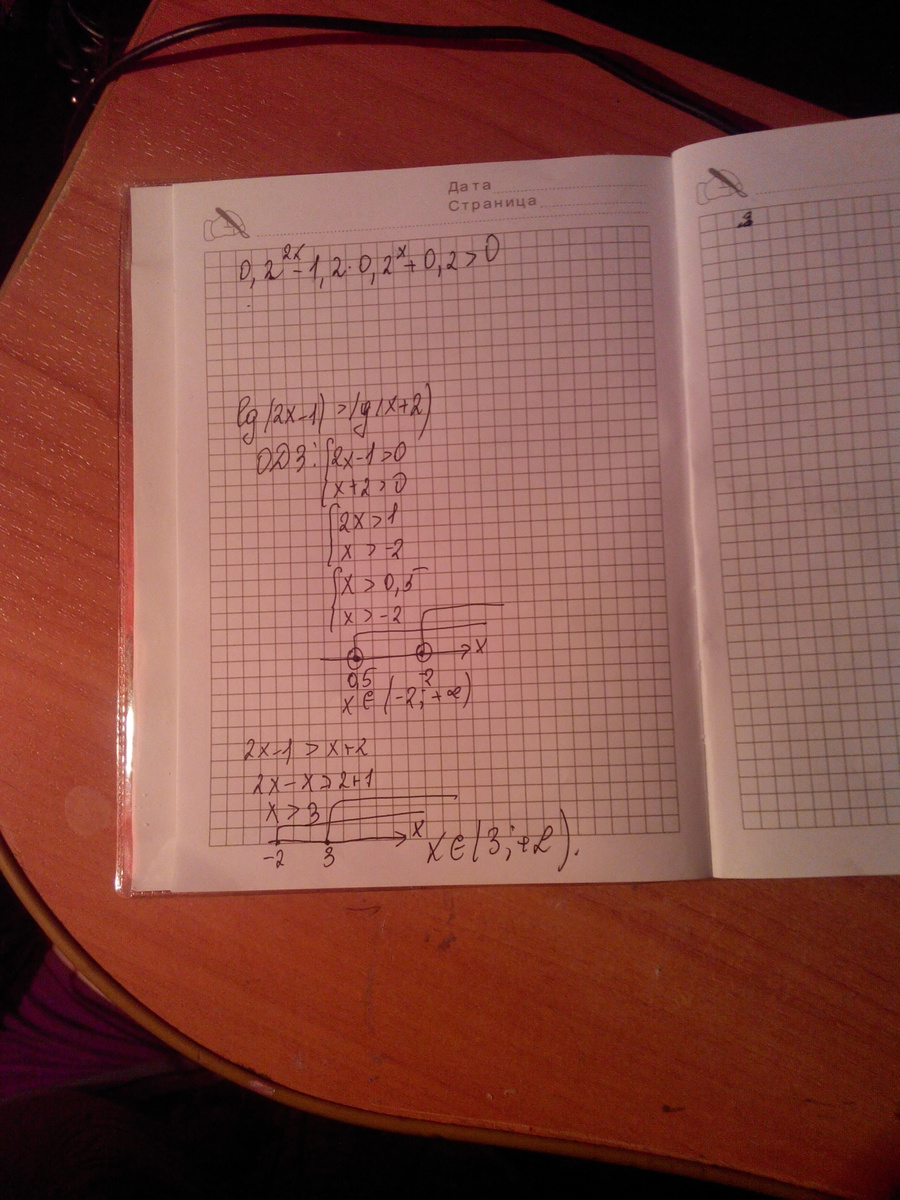 Дата
Страница
0,2^{2x} - 1,2·0,2^x + 0,2 > 0
lg(2x-1) > lg(x+2)
ОДЗ: {2x-1>0
{x+2>0
{2x>1
{x>-2
{x>0,5
{x>-2
x
0,5 -2
x ∈ (-2; +∞)
2x-1 > x+2
2x-x>2+1
x>3
x
-2 3 x ∈ (3; +∞).